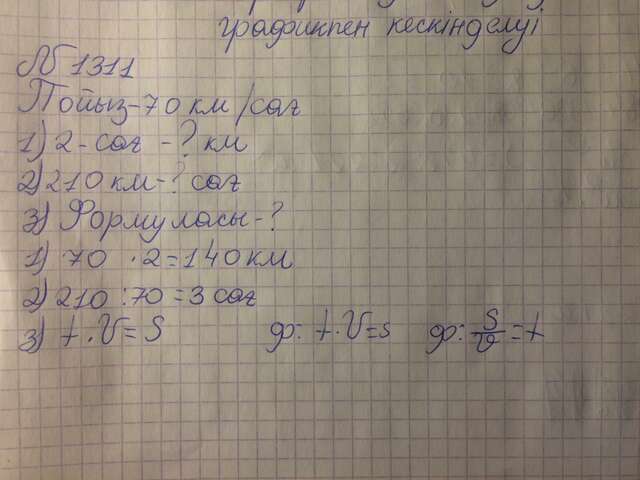 графикпен кескінделуі
№ 1311
Пойыз-70 км/сағ
1) 2-сағ -? км
2) 210 км-? сағ
3) Формуласы-?
1) 70 · 2=140 км
2) 210 :70=3 сағ
3) t·V=S ф: t·V=s ф: S/V=t